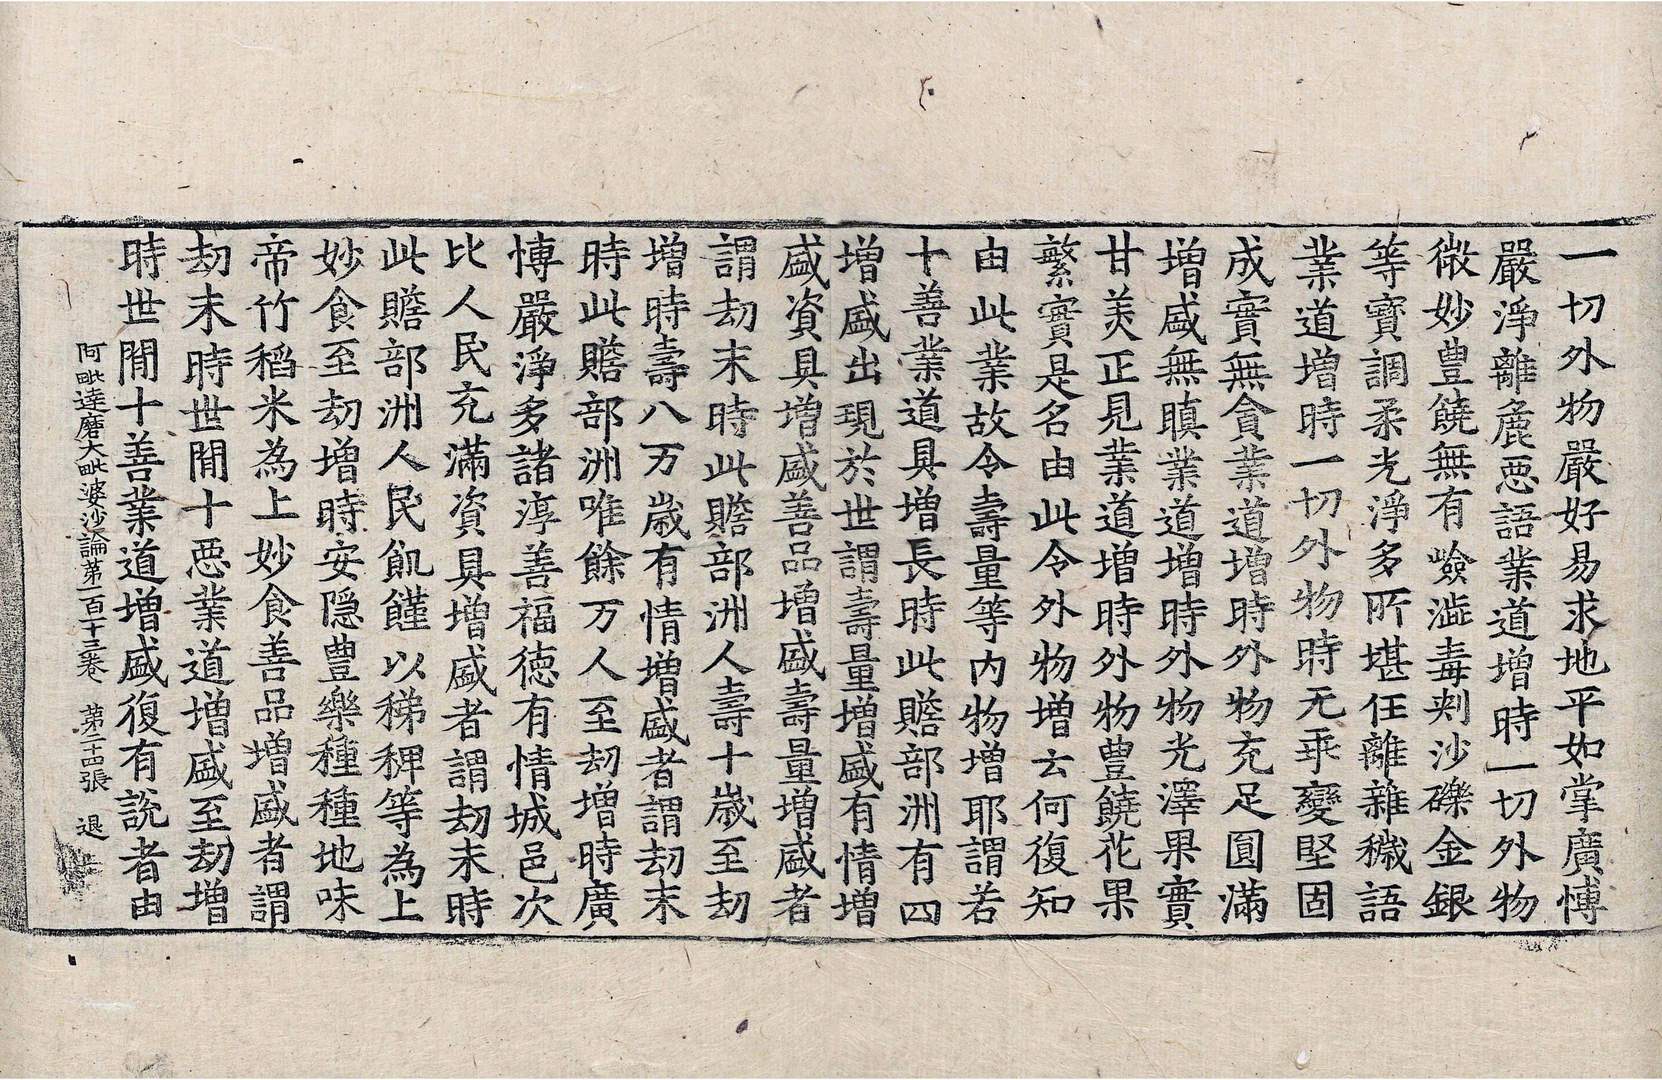 一切外物嚴好易求地平如掌廣愽
嚴淨離麁惡語業道增時一切外物
微妙豊饒無有嶮澁毒刾沙礫金銀
等寶調柔光淨多所堪任離雜穢語
業道增時一切外物時无乖變堅固
成實無貪業道增時外物充足圓滿
增盛無瞋業道增時外物光澤果實
甘美正見業道增時外物豊饒花果
繁實是名由此令外物增云何復知
由此業故令壽量等內物增耶謂若
十善業道具增長時此贍部洲有四
增盛出現於世謂壽量增盛有情增
盛資具增盛善品增盛壽量增盛者
謂劫末時此贍部洲人壽十歲至劫
增時壽八万歲有情增盛者謂劫末
時此贍部洲唯餘万人至劫增時廣
愽嚴淨多諸淳善福德有情城邑次
比人民充滿資具增盛者謂劫末時
此贍部洲人民飢饉以稊稗等為上
妙食至劫增時安隱豊樂種種地味
帝竹稻米為上妙食善品增盛者謂
劫末時世間十惡業道增盛至劫增
時世間十善業道增盛復有說者由
阿毗達磨大毗婆沙論苐一百十三卷 苐二十四張 退